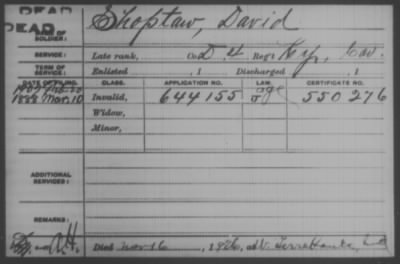 DEAD
DEAD
NAME OF SOLDIER: Shoptaw, David
SERVICE: Late rank, Co. D 4 Reg't Ky. Cav.
TERM OF SERVICE: Enlisted , 1 Discharged , 1
DATE OF FILING. CLASS. APPLICATION NO. LAW. CERTIFICATE NO.
1907 Feb 20
1888 Mar. 10 Invalid, 644155 Age 550276
Widow,
Minor,
ADDITIONAL SERVICES:
REMARKS:
Died Nov 16, 1926, at W. Terre Haute, Ind